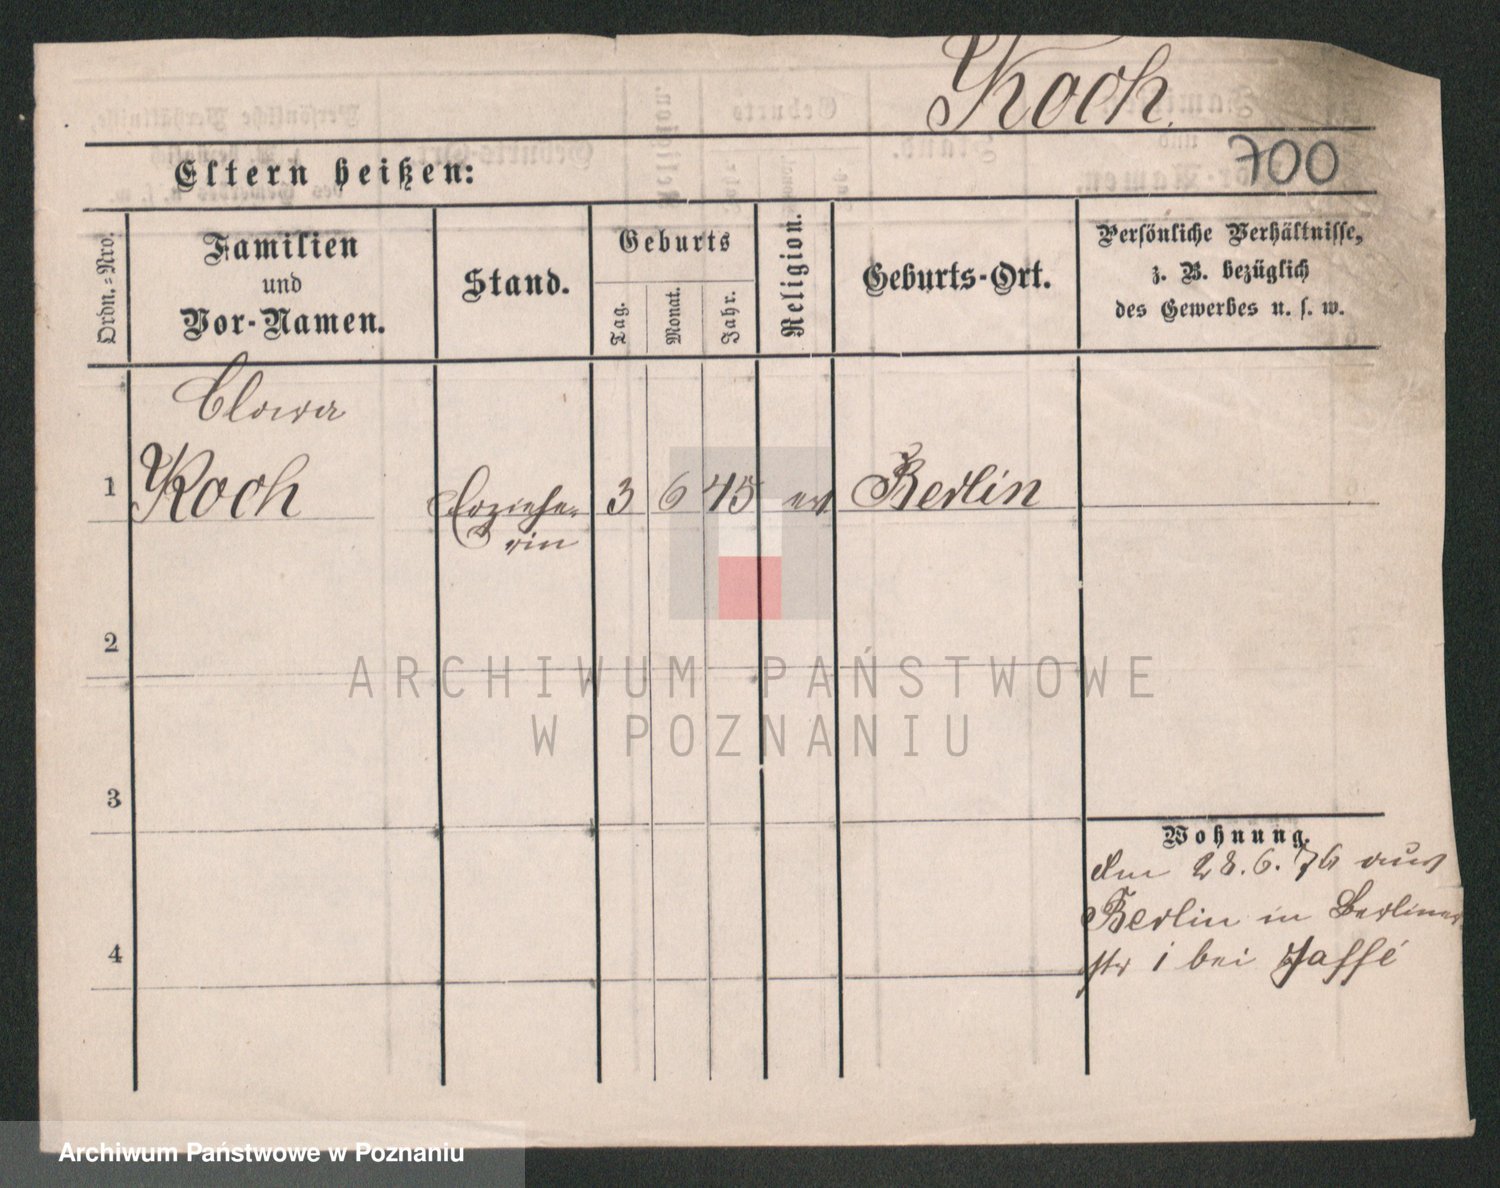 Koch
700
Eltern heißen:
Ordn.-Nro.
Familien
und
Vor-Namen.
Stand.
Geburts
Tag.
Monat.
Jahr.
Religion.
Geburts-Ort.
Persönliche Verhältnisse,
z. B. bezüglich
des Gewerbes u. s. w.
Clara
1 Koch Erziehe- 3 6 45 ev Berlin
rin
2
3
4
Wohnung.
Am 28.6.76 aus
Berlin in Berliner
str 1 bei Jaffé
ARCHIWUM PAŃSTWOWE
W POZNANIU
Archiwum Państwowe w Poznaniu